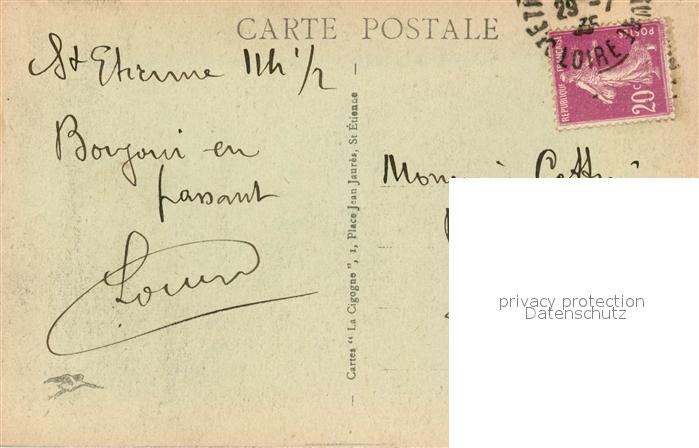 CARTE POSTALE
St Etienne 11h 1/2
Bonjour en
passant
Cartes " La Cigogne ", 1, Place Jean Jaurès, St Étienne
29 - 7
35
LOIRE
POSTES
REPUBLIQUE FRANCAISE
20c
Monsieur
privacy protection
Datenschutz